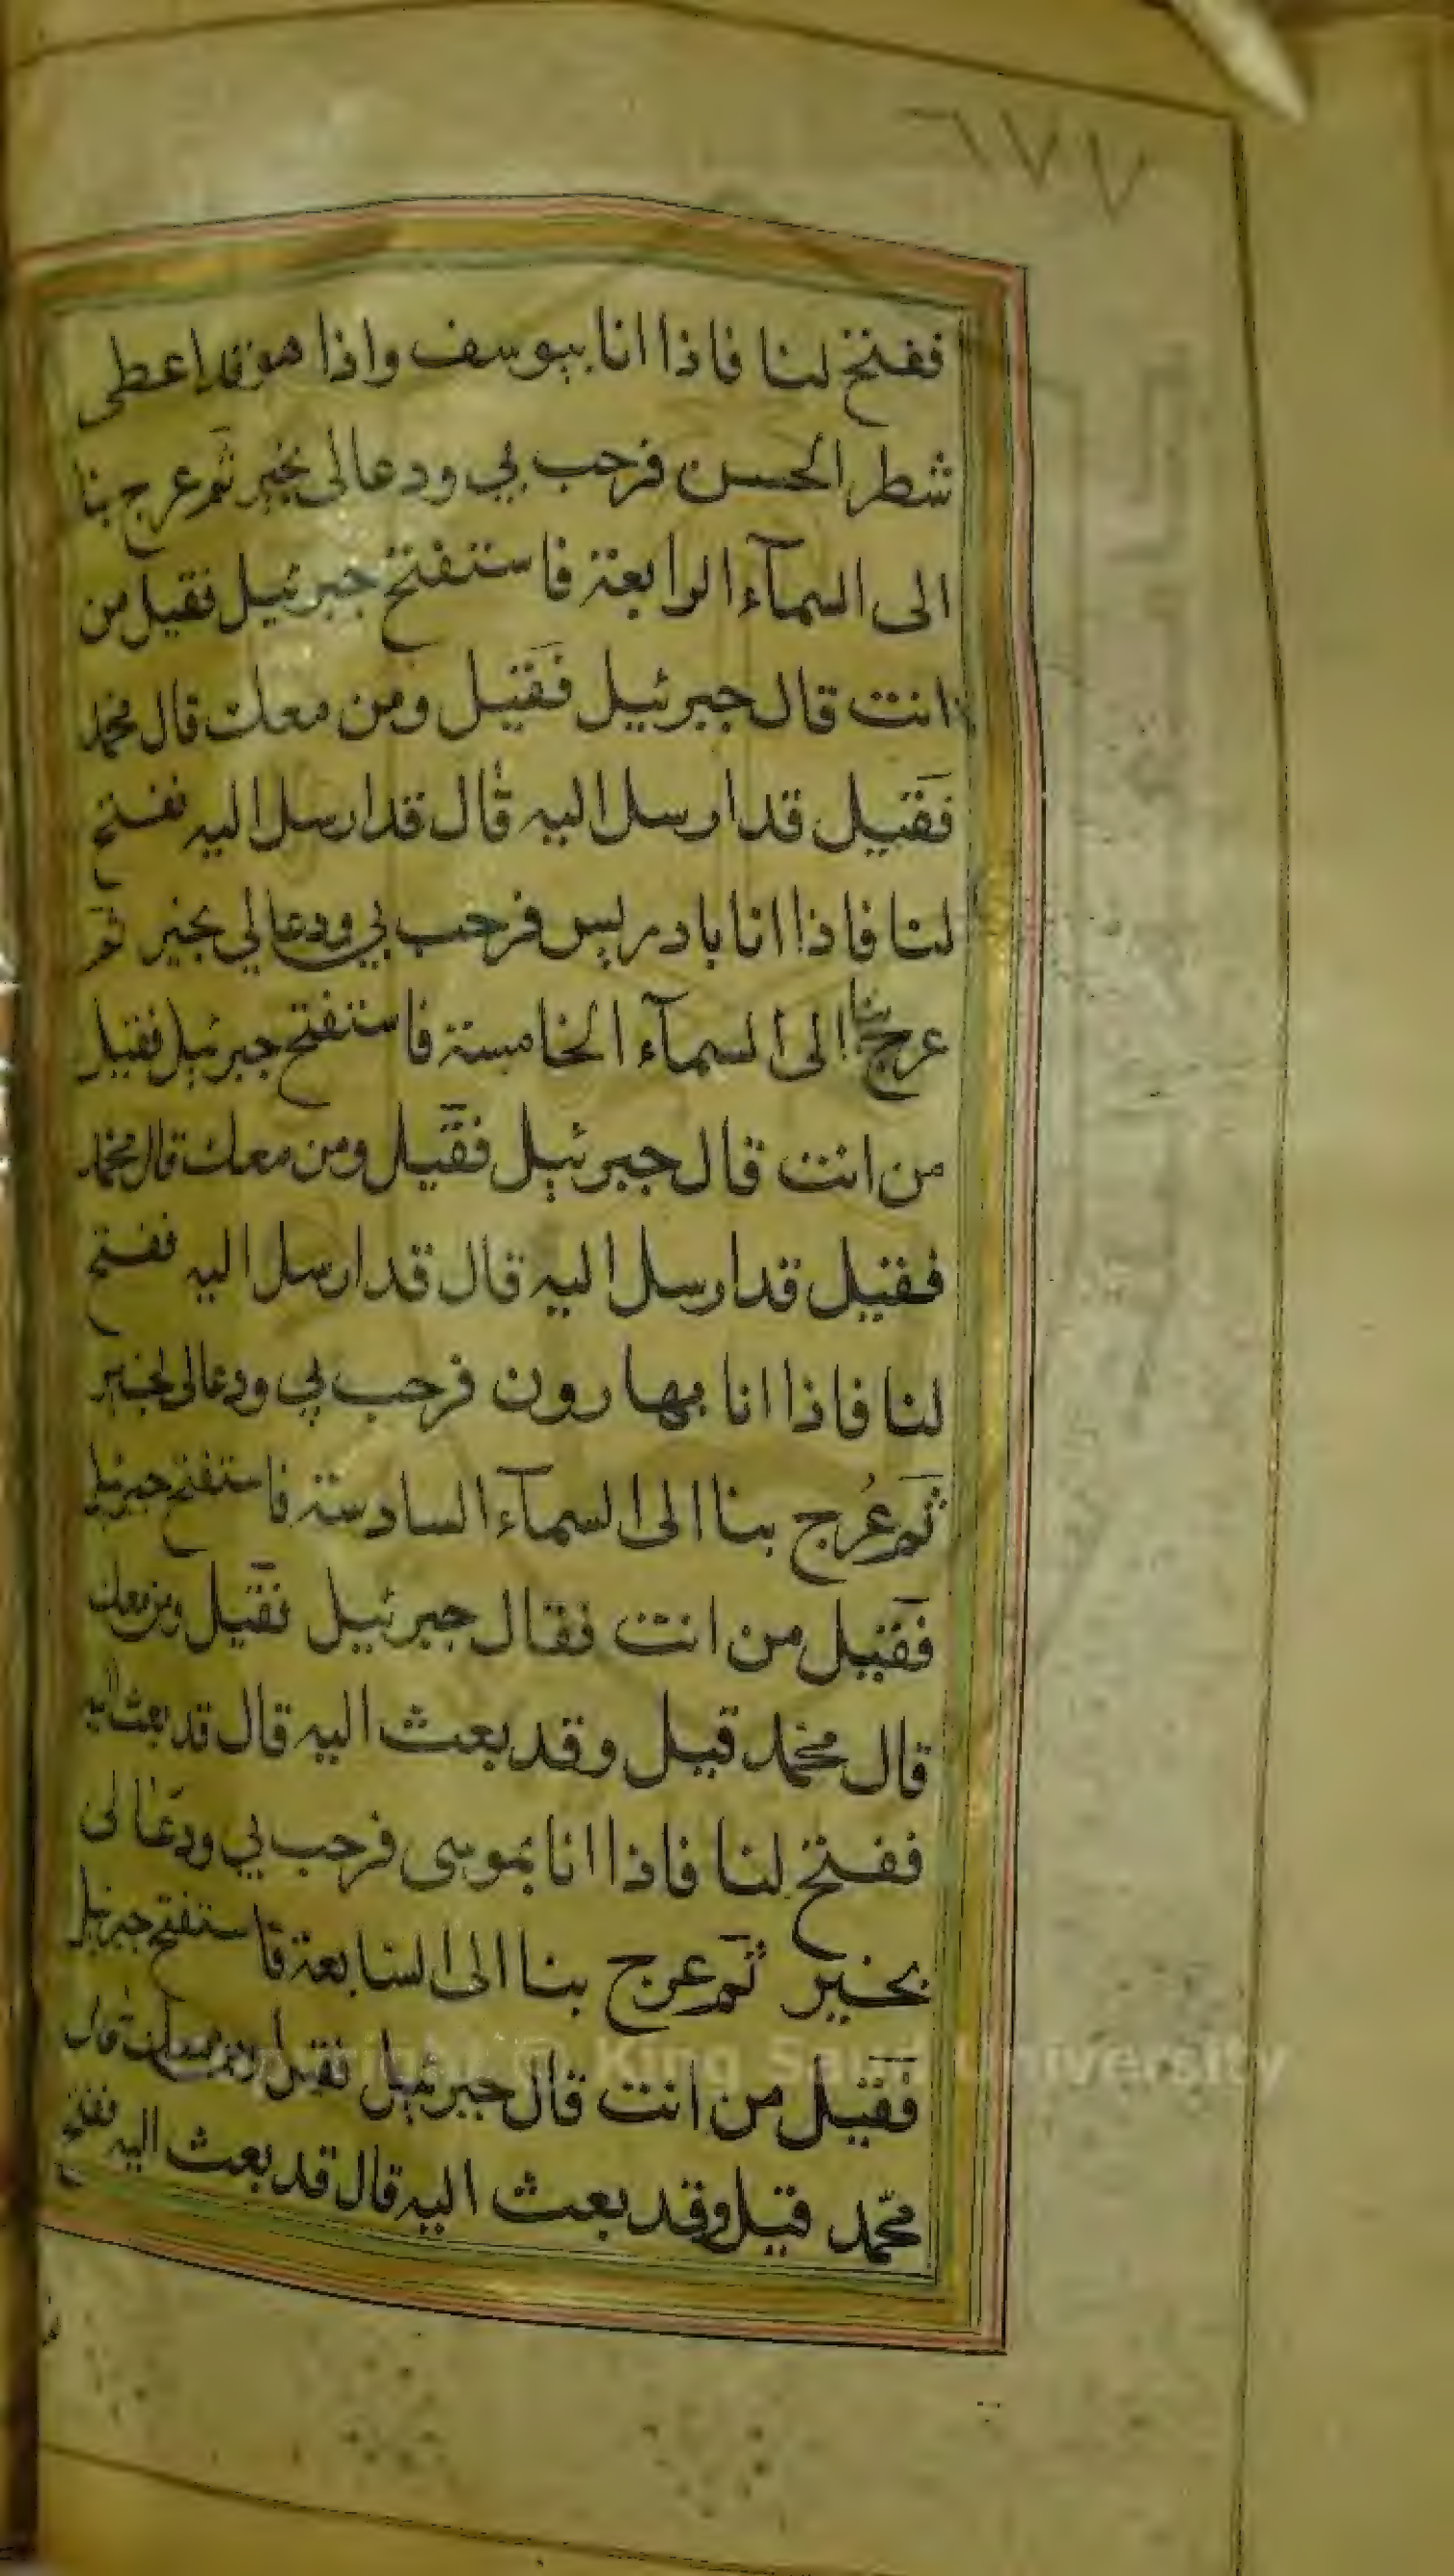 ٦٧٧
ففتح لنا فاذا انا بيوسف واذا هو قد اعطى
شطر الحسن فرحب بي ودعا لي بخير ثم عرج بنا
الى السمآء الرابعة فاستفتح جبرئيل فقيل من
انت قال جبرئيل فقيل ومن معك قال محمد
فقيل قد ارسل اليه قال قد ارسل اليه ففتح
لنا فاذا انا بادريس فرحب بي ودعا لي بخير ثم
عرج بنا الى السمآء الخامسة فاستفتح جبرئيل فقيل
من انت قال جبرئيل فقيل ومن معك قال محمد
فقيل قد ارسل اليه قال قد ارسل اليه ففتح
لنا فاذا انا بهارون فرحب بي ودعا لي بخير
ثم عُرج بنا الى السمآء السادسة فاستفتح جبرئيل
فقيل من انت فقال جبرئيل فقيل ومن معك
قال محمد قيل وقد بعث اليه قال قد بعث اليه
ففتح لنا فاذا انا بموسى فرحب بي ودعا لي
بخير ثم عرج بنا الى السابعة فاستفتح جبرئيل
فقيل من انت قال جبرئيل فقيل ومن معك قال
محمد قيل وقد بعث اليه قال قد بعث اليه ففتح
Copyright © King Saud University